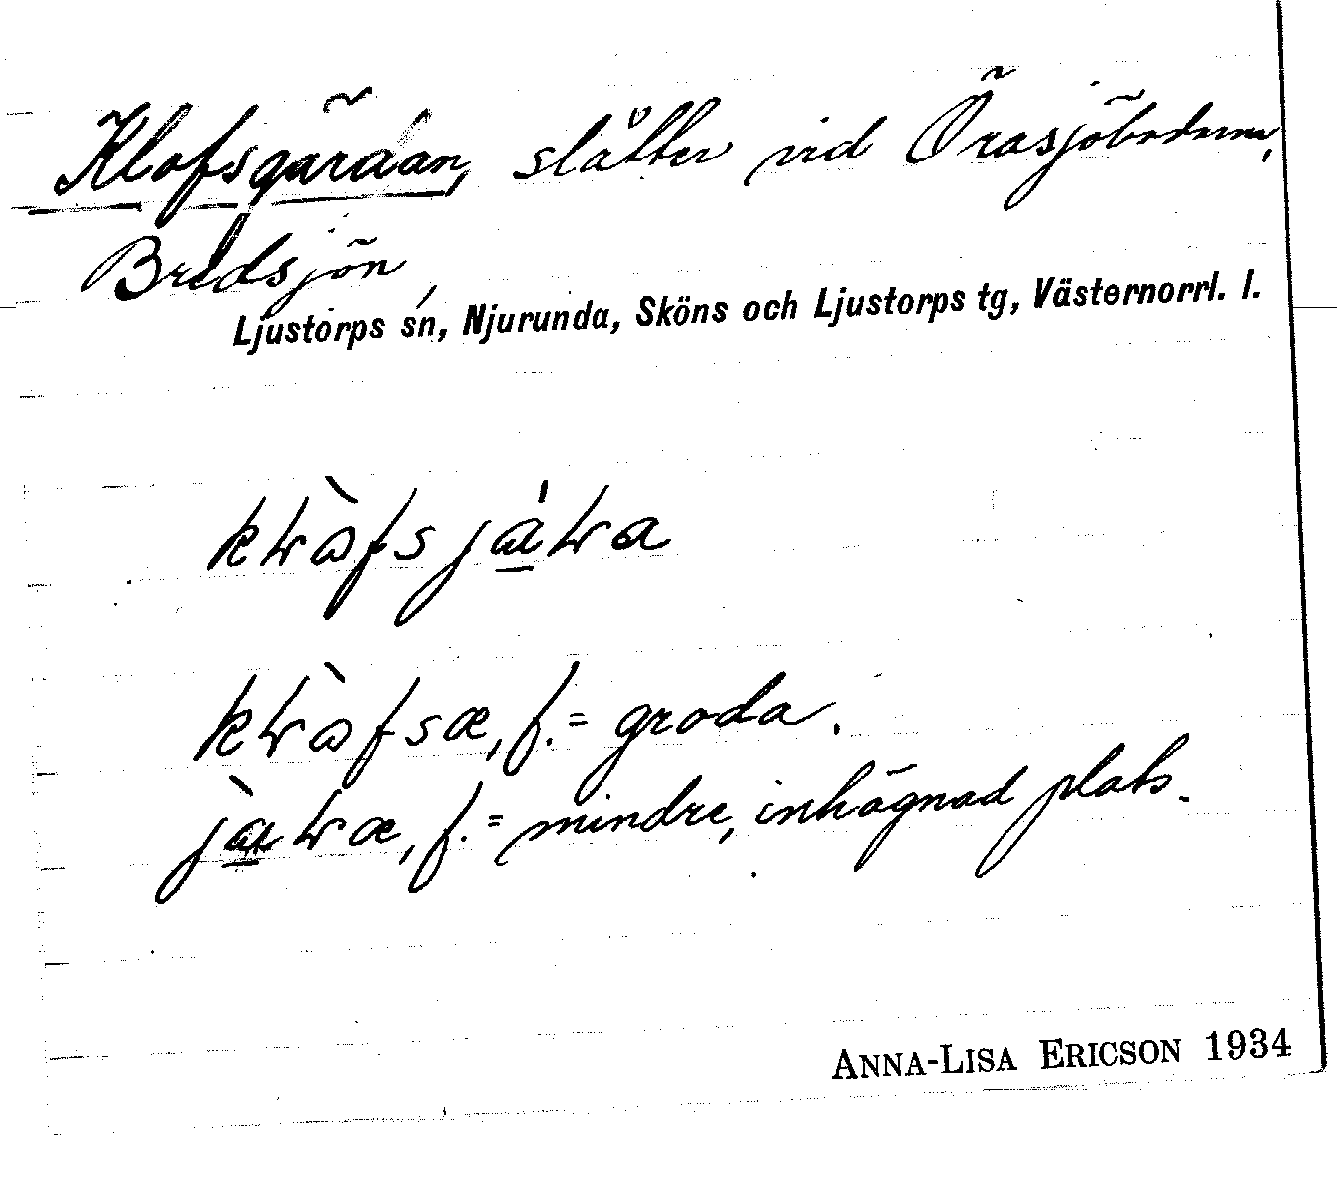 Klofsgärdan, slåtter vid Örasjöbodarna,
Bredsjön,
Ljustorps sn, Njurunda, Sköns och Ljustorps tg, Västernorrl. l.
kƚòfsjáƚa
kƚòfsæ, f. = groda.
jàƚæ, f. = mindre, inhägnad plats.
ANNA-LISA ERICSON 1934